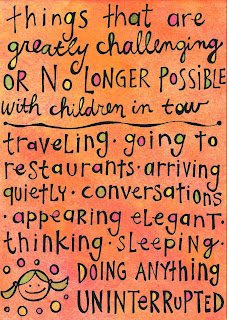 things that are
greatly challenging
OR NO LONGER POSSIBLE
with children in tow
traveling · going to
restaurants · arriving
quietly · conversations
· appearing elegant ·
thinking · sleeping ·
DOING ANYthING
UNINTERRUPTED